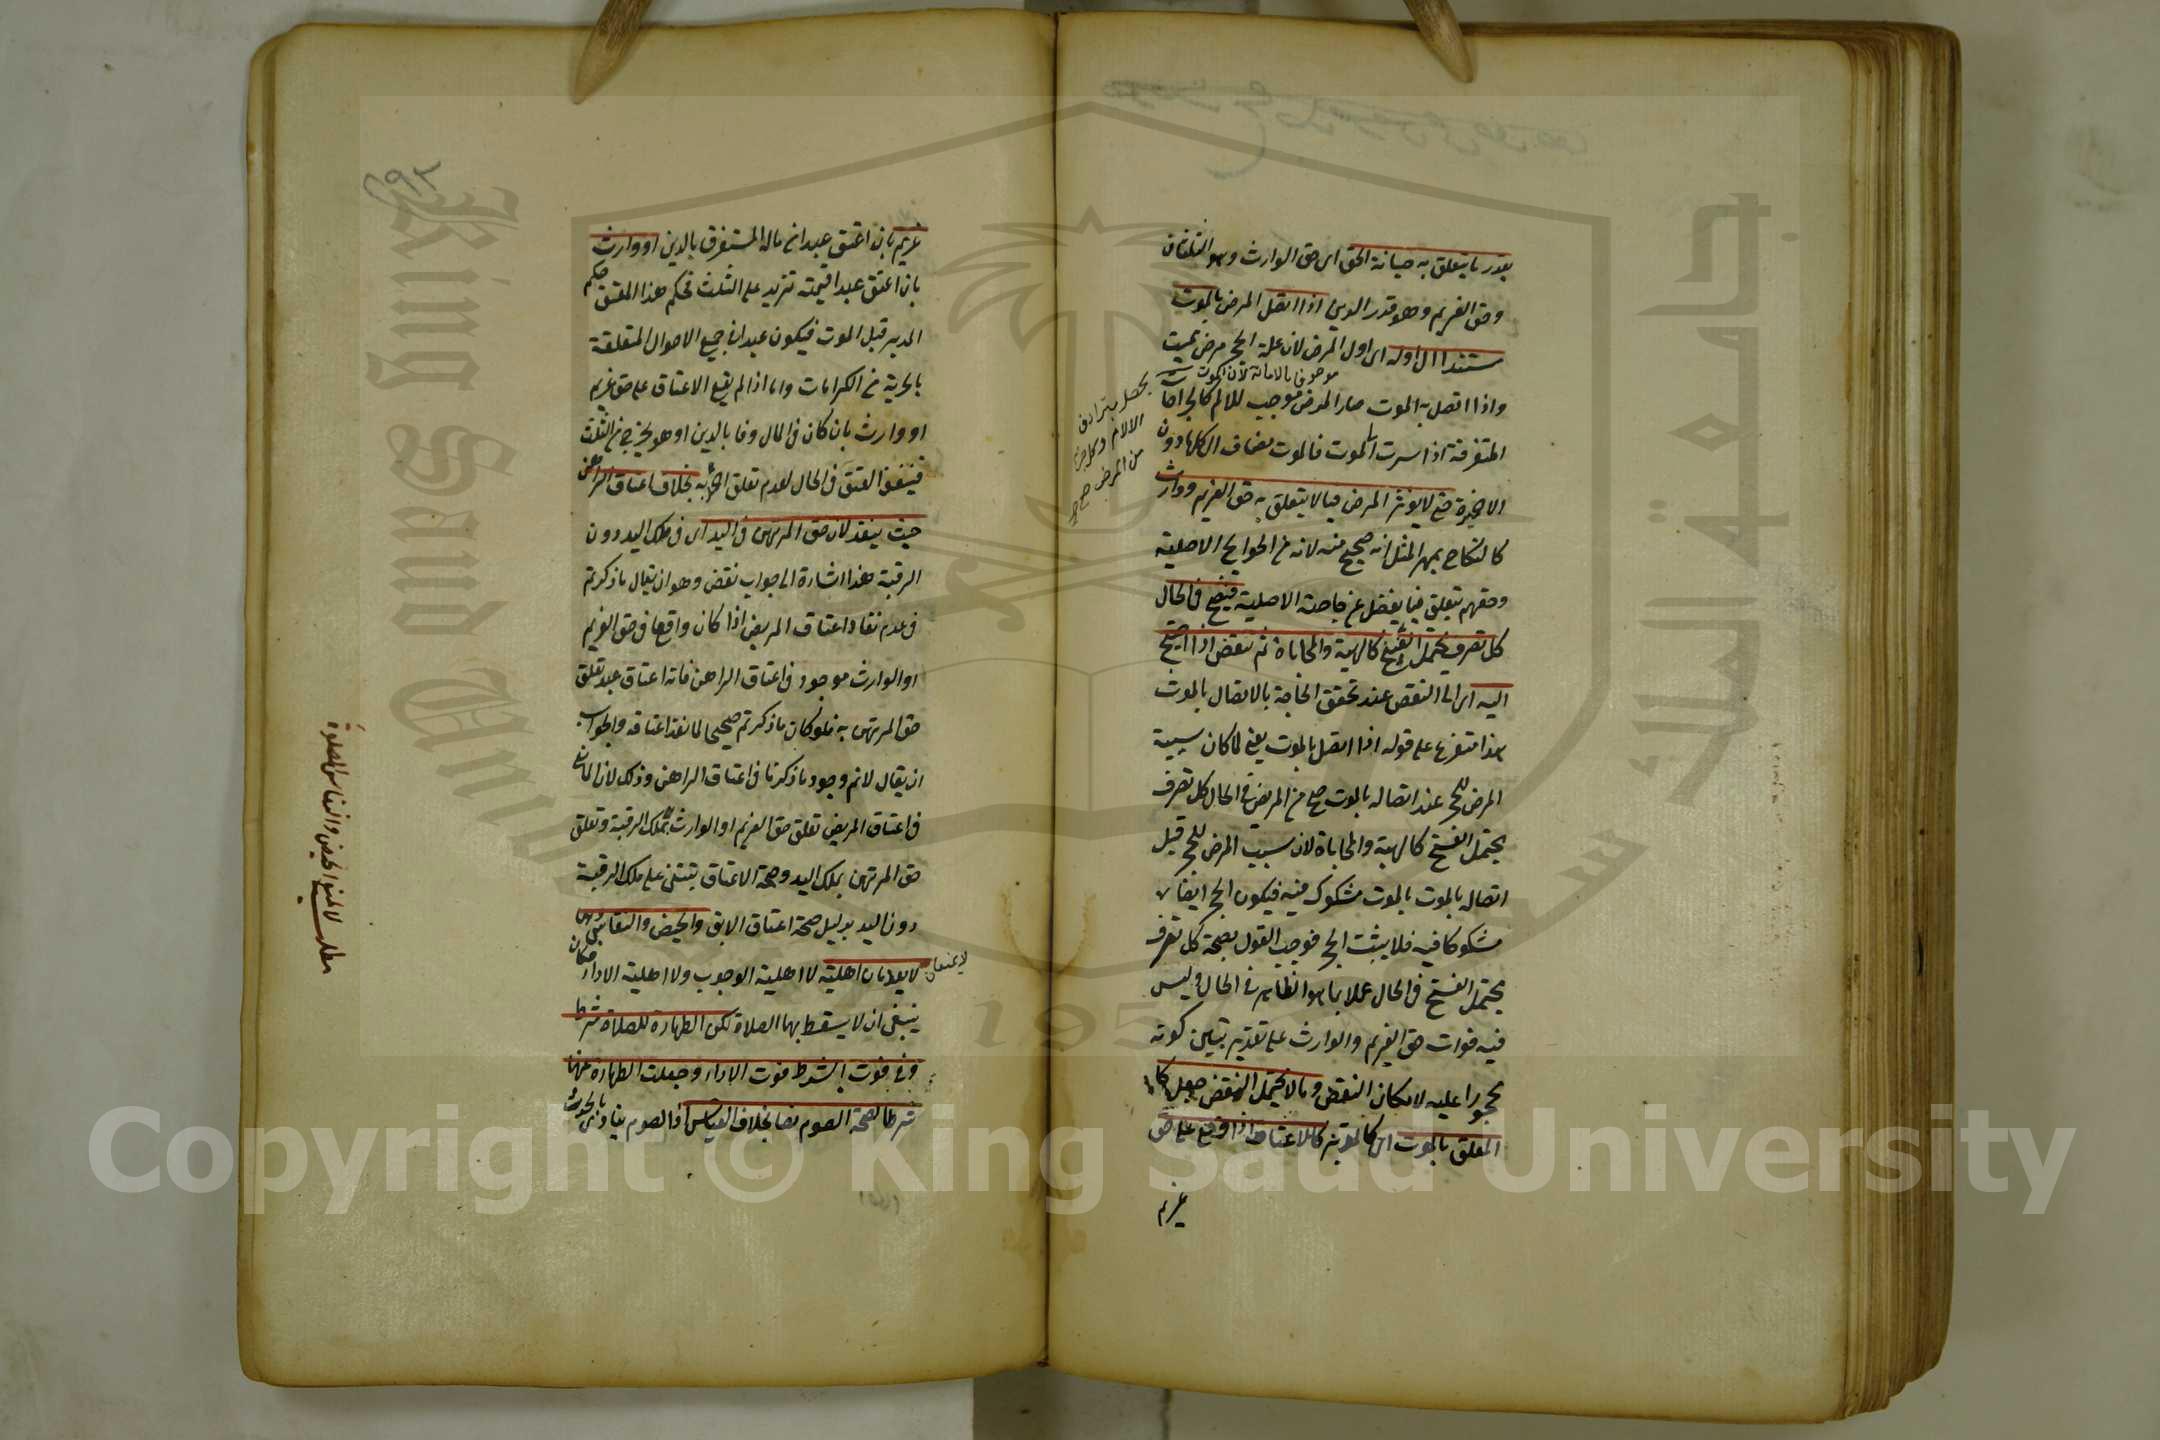 بقدر ما يتعلق به صيانة الحق اى حق الوارث وهو الثلثان
وحق الغريم وهو قدر الدين اذا اتصل المرض بالموت
مستندا الى اوله اى اول المرض لان علة الحجر مرض مميت
واذا اتصل به الموت صار المرض موصوفا بالاماتة لان الموت
يحصل بترادف
الالام
من المرض صح
موجب للالم كالجراحات
المتفرقة اذا سرت الى الموت فالموت يضاف الى كلها دون
الاخيرة حتى لا يؤثر المرض فيما لا يتعلق به حق الغريم ووارث
كالنكاح بمهر المثل انه صحيح منه لانه من الحوايج الاصلية
وحقهم يتعلق فيما يفضل عن حاجته الاصلية فيصح فى الحال
كل تصرف يحتمل الفسخ كالهبة والمحاباة ثم ينقض اذا احتيج
اليه اى الى النقض عند تحقق الحاجة بالاتصال بالموت
هذا متفرع على قوله اذا اتصل بالموت يعنى لما كان سببية
المرض للحجر عند اتصاله بالموت صح من المريض فى الحال كل تصرف
يحتمل الفسخ كالهبة والمحاباة لان سبب المرض للحجر قبل
اتصاله بالموت بالموت مشكوك فيه فيكون الحجر ايضا
مشكوكا فيه فلا يثبت الحجر فوجب القول بصحة كل تصرف
يحتمل الفسخ فى الحال عملا بما هو الظاهر فى الحال وليس
فيه فوات حق الغريم والوارث على تقدير تبين كونه
محجورا عليه لامكان النقض وما لا يحتمل النقض جعل كا
المعلق بالموت اى كالمدبر كالاعتاق اذا وقع على حق
غريم
١٩٢
غريم بان اعتق عبدا من ماله المستغرق بالدين او وارث
بان اعتق عبدا قيمته تزيد على الثلث فحكم هذا المعتق حكم
المدبر قبل الموت فيكون عبدا فى جميع الاحوال المتعلقة
بالحرية من الكرامات واما اذا لم يقع الاعتاق على حق غريم
او وارث بان كان فى المال وفا بالدين او هو يخرج من الثلث
فينفذ العتق فى الحال لعدم تعلق احد به بخلاف اعتاق الراهن
حيث ينفذ لان حق المرتهن فى اليد اى فى ملك اليد دون
الرقبة هذا اشارة الى جواب نقض وهو ان يقال ما ذكرتم
فى عدم نفاذ اعتاق المريض اذا كان واقعا فى حق الغريم
او الوارث موجود فى اعتاق الراهن فانه اعتاق عبد تعلق
حق المرتهن به فلو كان ما ذكرتم صحيحا لما نفذ اعتاقه والجواب
ان يقال لا نم وجود ما ذكرنا فى اعتاق الراهن وذلك لان المانع
فى اعتاق المريض تعلق حق الغريم او الوارث بملك الرقبة وتعلق
حق المرتهن بملك اليد وصحة الاعتاق يبتنى على ملك الرقبة
دون اليد بدليل صحة اعتاق الابق والحيض والنفاس
لا يعدمان اهلية لا اهلية الوجوب ولا اهلية الاداء فكان
ينبغى ان لا يسقط بهما الصلاة لكن الطهارة للصلاة شرط
وفى فوت الشرط فوت الاداء وجعلت الطهارة عنهما
شرطا لصحة الصوم نصا بخلاف القياس اذ الصوم يتادى بالحدث
مطلب لا يمنع الحيض والنفاس الصلوة